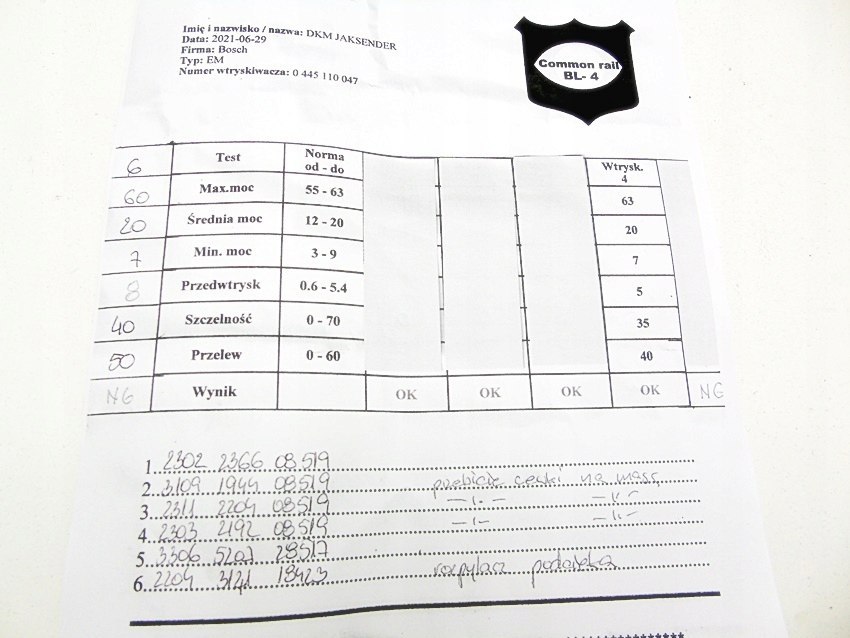 Imię i nazwisko / nazwa: DKM JAKSENDER
Data: 2021-06-29
Firma: Bosch
Typ: EM
Numer wtryskiwacza: 0 445 110 047
Common rail
BL- 4
6 Test Norma od - do Wtrysk. 4
60 Max.moc 55 - 63 63
20 Średnia moc 12 - 20 20
7 Min. moc 3 - 9 7
8 Przedwtrysk 0.6 - 5.4 5
40 Szczelność 0 - 70 35
50 Przelew 0 - 60 40
NG Wynik OK OK OK OK NG
1. 2302 2366 08519
2. 3109 1944 08519 przebicie cewki na masę
3. 2311 2204 08519 —||— —||—
4. 2303 2192 08519 —||— —||—
5. 3306 5207 28517
6. 2204 3121 18423 rozpylacz